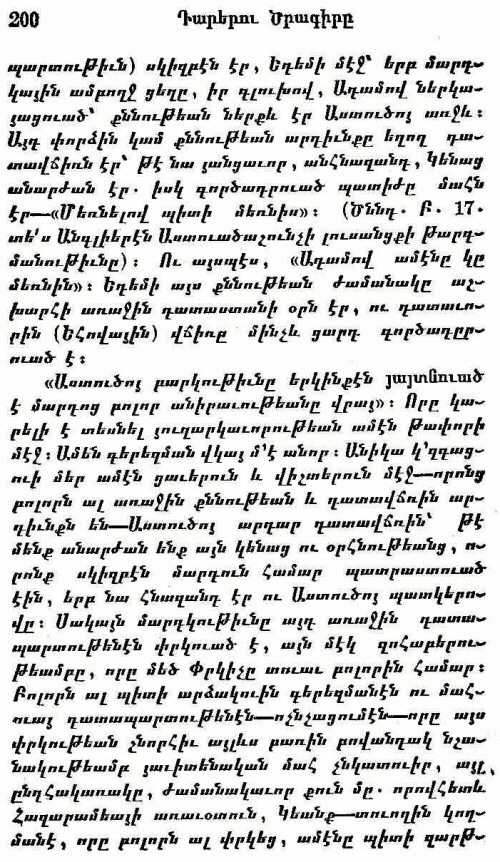 200 Դարերու Ծրագիրը
պարտութիւն) սկիզբէն էր, Եդեմի մէջ՝ երբ մարդ-
կային ամբողջ ցեղը, իր գլուխով, Ադամով ներկա-
յացուած՝ քննութեան ներքև էր Աստուծոյ առջև։
Այդ փորձին կամ քննութեան արդիւնքը եղող դա-
տավճիռն էր՝ թէ նա յանցաւոր, անհնազանդ, Կենաց
անարժան էր. իսկ գործադրուած պատիժը մահն
էր—«Մեռնելով պիտի մեռնիս»։ (Ծննդ. Բ. 17.
տե՛ս Անգլիերէն Աստուածաշունչի լուսանցքի թարգ-
մանութիւնը)։ Ու այսպէս, «Ադամով ամէնը կը
մեռնին»։ Եդեմի այս քննութեան ժամանակը աշ-
խարհի առաջին դատաստանի օրն էր, ու դատաւո-
րին (Եհովային) վճիռը մինչև ցարդ գործադըր-
ուած է։
«Աստուծոյ բարկութիւնը երկինքէն յայտնուած
է մարդոց բոլոր անիրաւութեանը վրայ»։ Որը կա-
րելի է տեսնել յուղարկաւորութեան ամէն թափօրի
մէջ։ Ամեն գերեզման վկայ մ՚է անոր։ Անիկա կ՚զգաց-
ուի մեր ամէն ցաւերուն և վիշտերուն մէջ—որոնց
բոլորն ալ առաջին քննութեան և դատավճռին ար-
դիւնքն են—Աստուծոյ արդար դատավճռին՝ թէ
մենք անարժան ենք այն կենաց ու օրհնութեանց, ո-
րոնք սկիզբէն մարդուն համար պատրաստուած
էին, երբ նա հնազանդ էր ու Աստուծոյ պատկերո-
վը։ Սակայն մարդկութիւնը այդ առաջին դատա-
պարտութենէն փրկուած է, այն մէկ զոհաբերու-
թեամբը, որը մեծ Փրկիչը տուաւ բոլորին համար։
Բոլորն ալ պիտի արձակուին գերեզմանէն ու մահ-
ուայ դատապարտութենէն—ոչնչացումէն—որը այս
փրկութեան շնորհիւ այլևս բառին բովանդակ նշա-
նակութեամբ յաւիտենական մահ չնկատուիր, այլ,
ընդհակառակը, ժամանակաւոր քուն մը. որովհետև
Հազարամեայի առաւօտուն, Կեանք—տուողին կող-
մանէ, որը բոլորն ալ փրկեց, ամէնը պիտի զարթ-